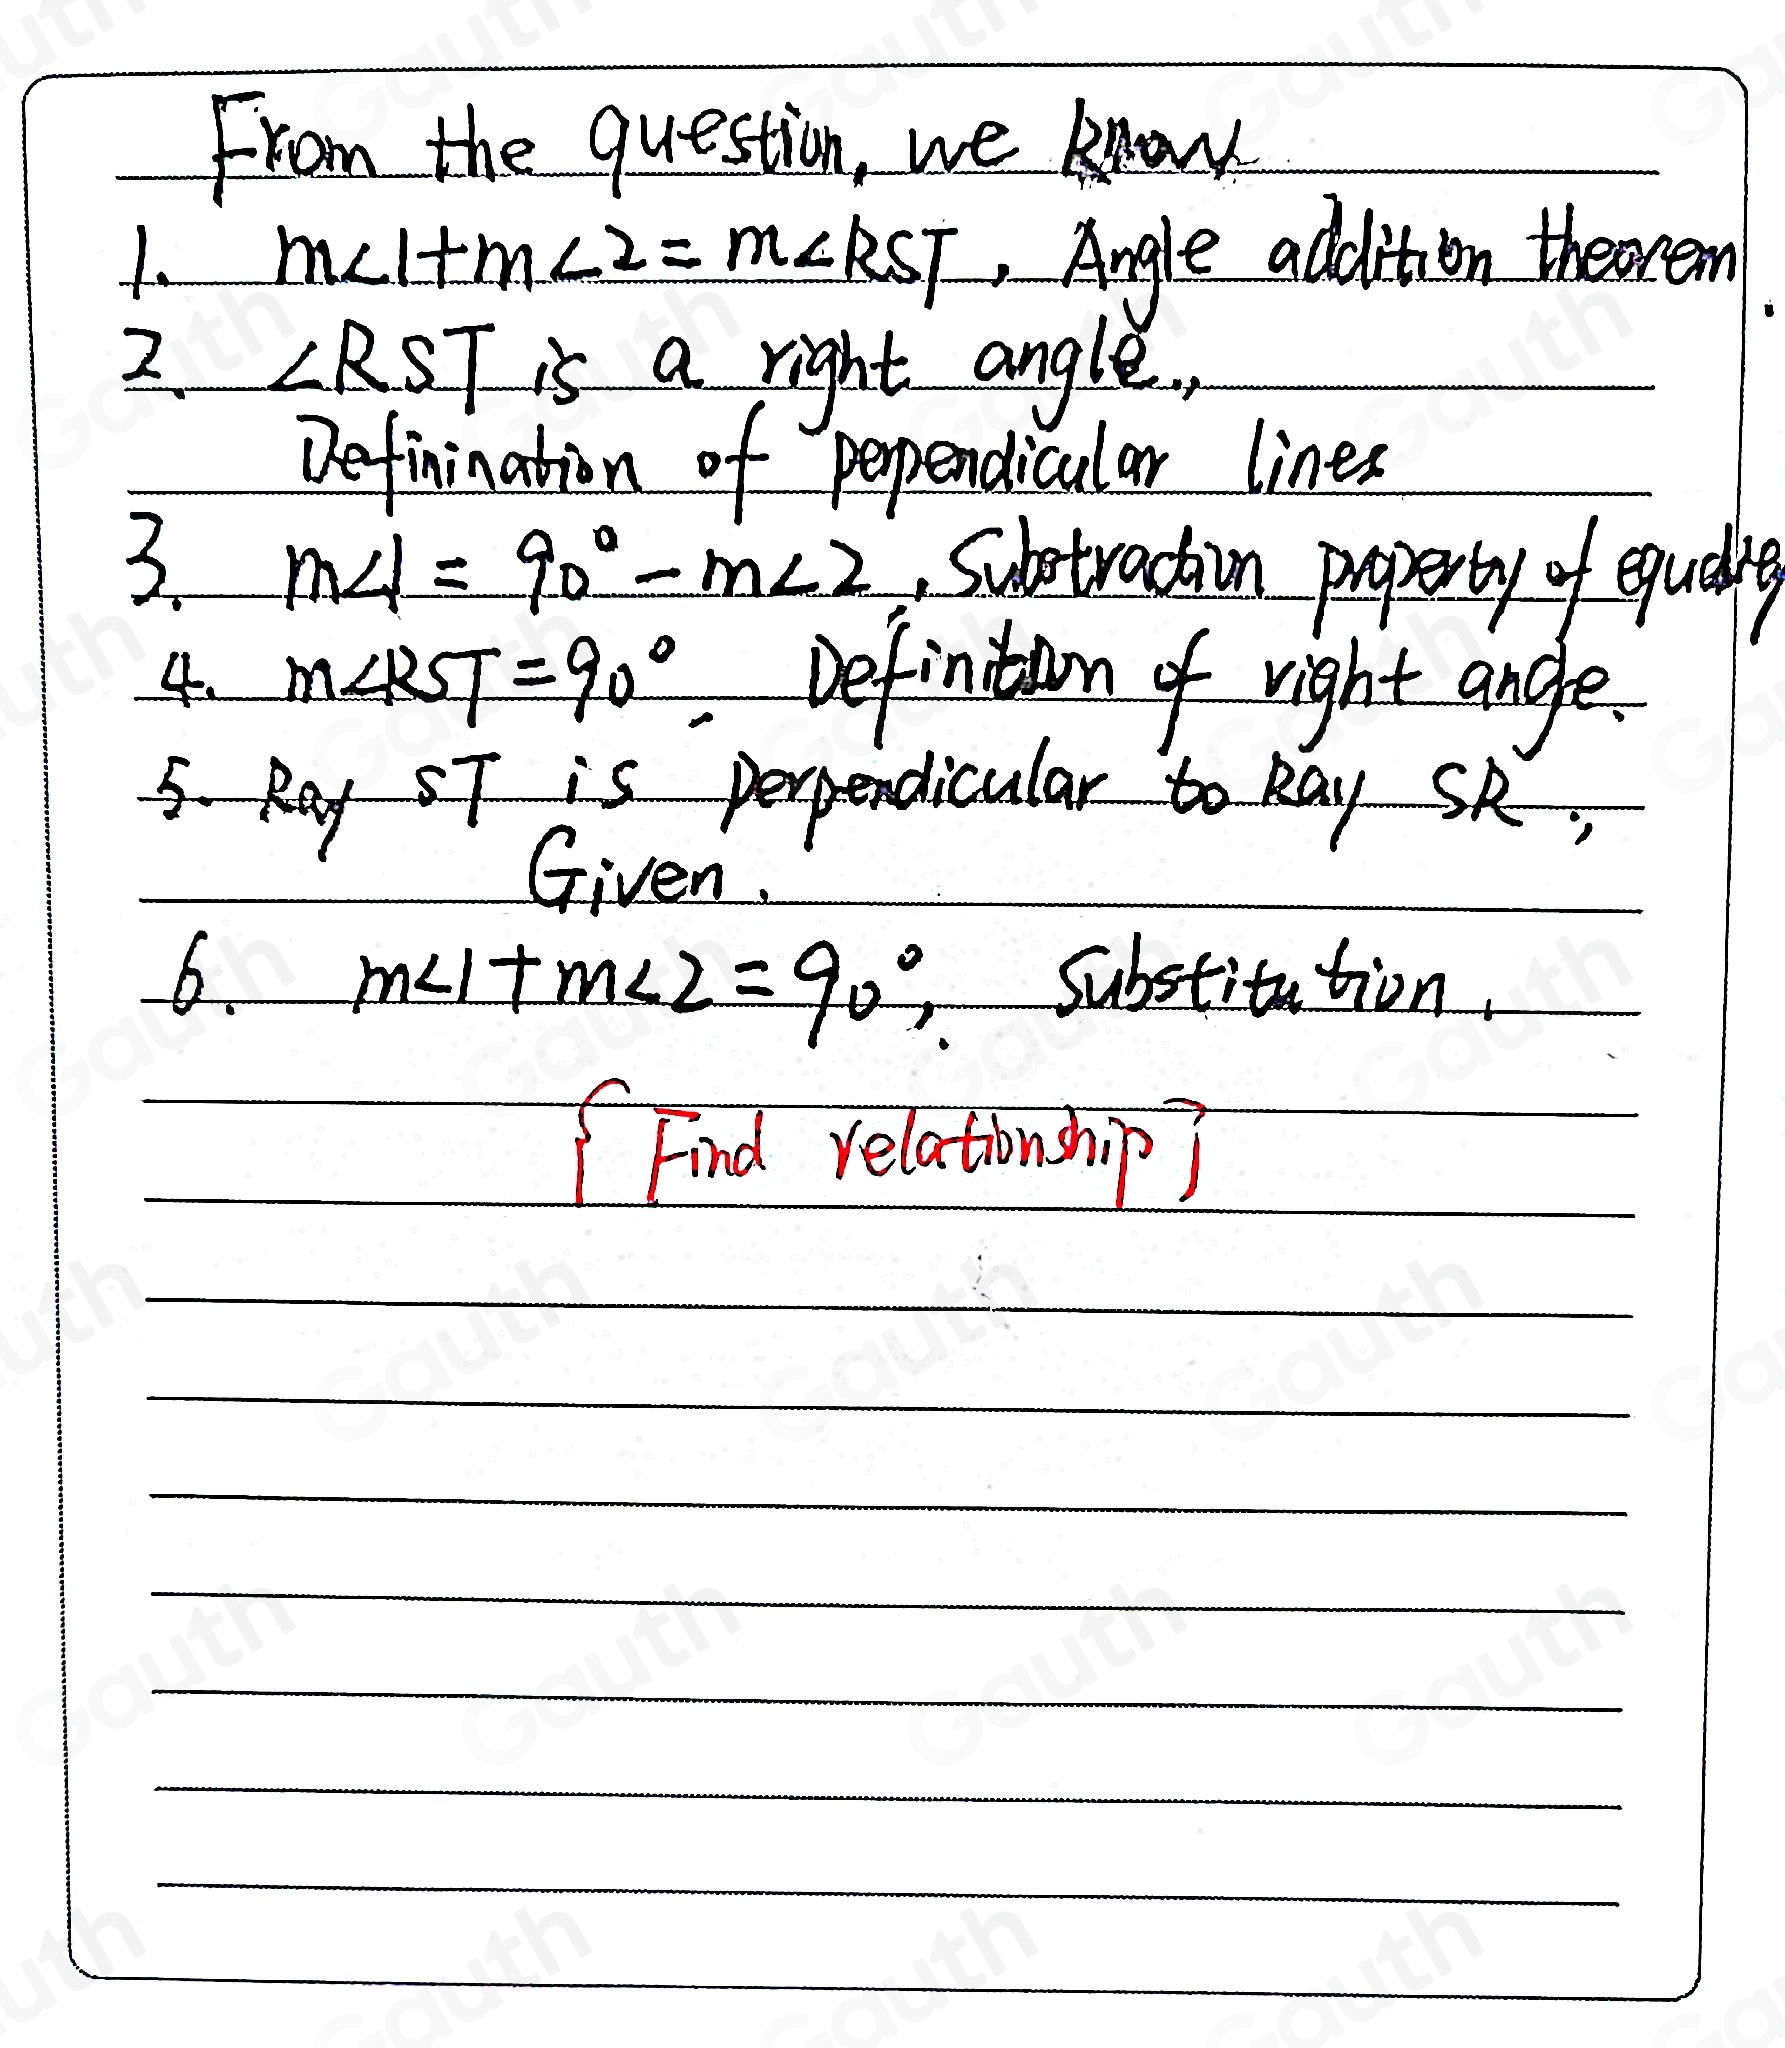 From the question, we know
1. m∠1+m∠2=m∠RST, Angle addition theorem.
2. ∠RST is a right angle.,
Definination of perpendicular lines
3. m∠1 = 90° - m∠2, Subtraction property of equality
4. m∠RST=90°, Definition of right angle.
5. Ray ST is perpendicular to Ray SR.,
Given.
6. m∠1+m∠2=90°, Substitution.
[Find relationship]